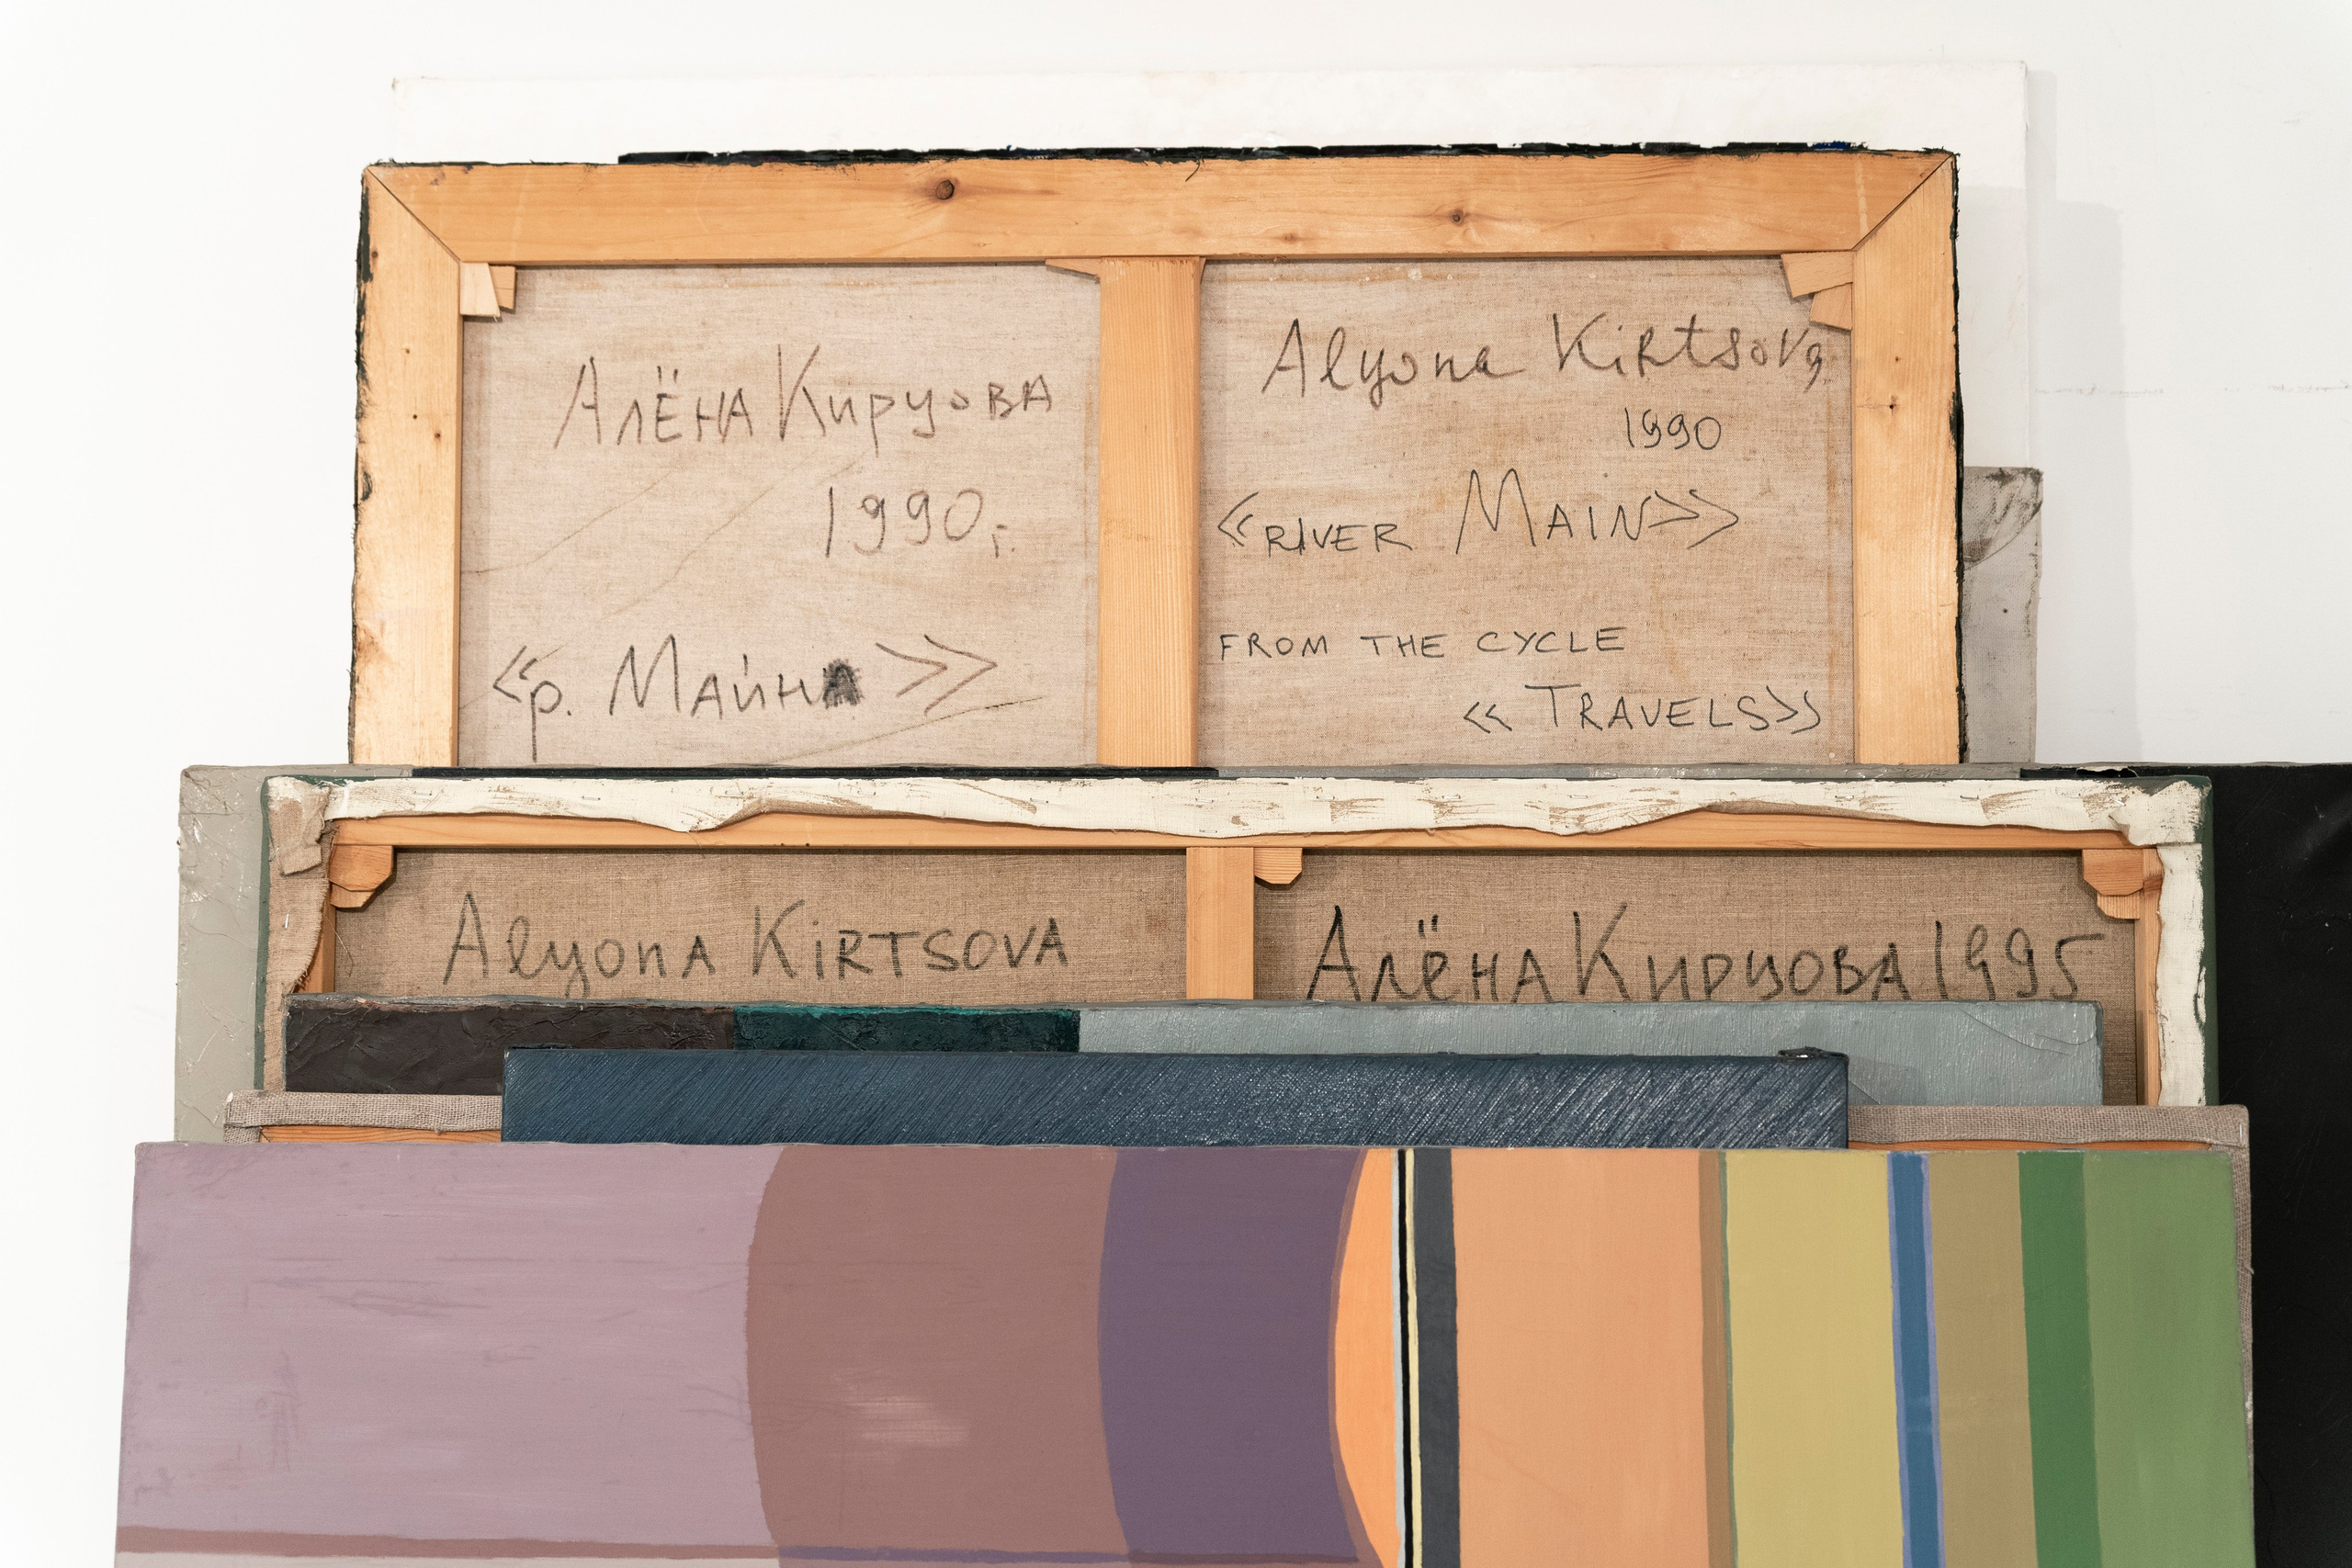 Алёна Кирцова
1990 г.
«р. Майна»
Alyona Kirtsova
1990
«RIVER MAIN»
FROM THE CYCLE
«TRAVELS»
Alyona KiRTSOVA
Алёна Кирцова 1995